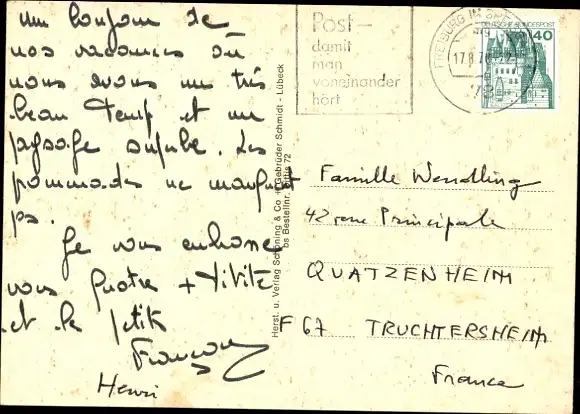 un bonjour de
nos vacances où
nous avons un très
beau temps et un
paysage superbe. Les
promenades ne manquent
pas.
Je vous embrasse
vous quatre +
et le petit
François
Henri
Post-
damit
man
voneinander
hört
FREIBURG IM BREISGAU
17.8.7
78
DEUTSCHE BUNDESPOST
40
Herst. u. Verlag Schöning & Co + Gebrüder Schmidt - Lübeck
Bestellnr.
72
Famille Wendling
42 rue Principale
QUATZENHEIM
F 67 TRUCHTERSHEIM
France